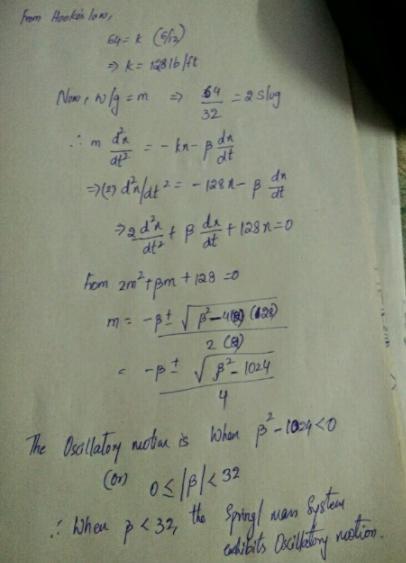 From Hooke's law,
64 = k (6/12)
⇒ k = 128 lb/ft
Now, w/g = m ⇒ 64/32 = 2 slug
∴ m d²x/dt² = -kx - β dx/dt
⇒ (2) d²x/dt² = -128x - β dx/dt
⇒ 2 d²x/dt² + β dx/dt + 128x = 0
From 2m² + βm + 128 = 0
m = -β ± √(β² - 4(2)(128)) / 2(2)
= -β ± √(β² - 1024) / 4
The Oscillatory motion is When β² - 1024 < 0
(or) 0 ≤ |β| < 32
∴ When β < 32, the Spring/mass System
exhibits Oscillatory motion.